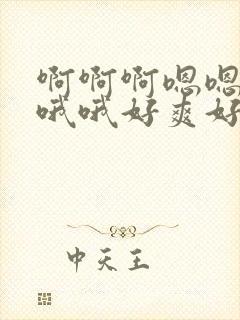 啊啊啊嗯嗯
哦哦好爽好
中天王